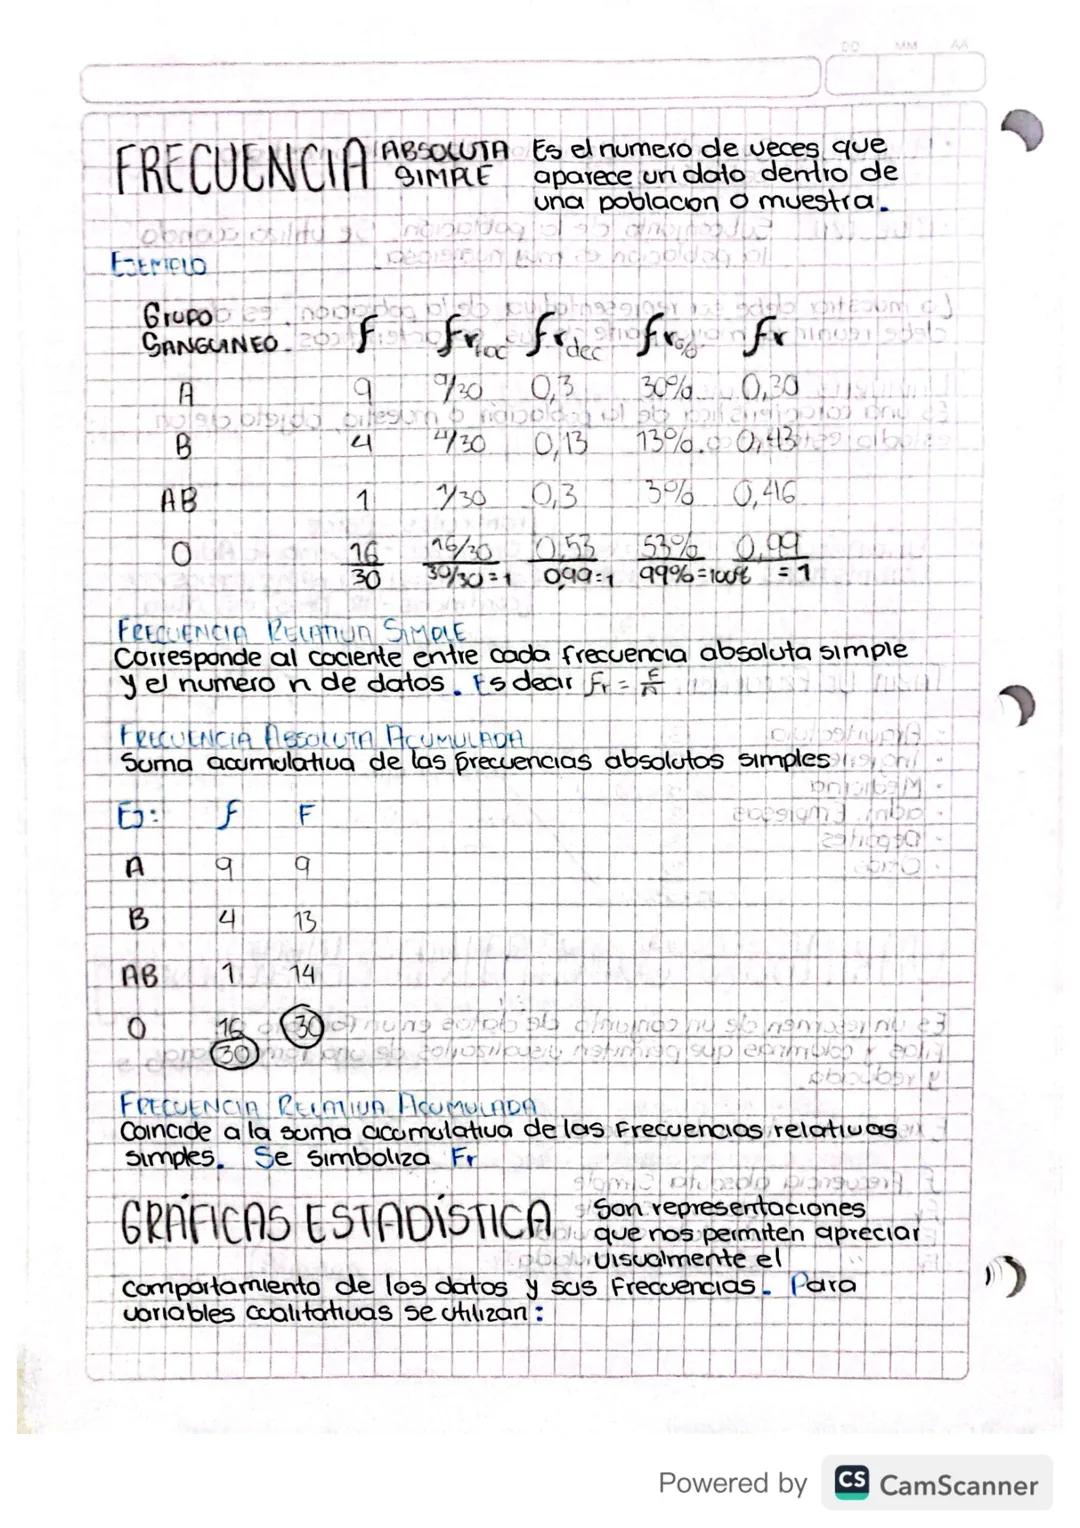 DD MM AA
FRECUENCIA ABSOLUTA SIMPLE
Es el numero de veces que
aparece un dato dentro de
una poblacion o muestra.
EJEMPLO
Grupo
SANGUINEO. f fr frac fr dec fr % fr
A 9 9/30 0,3 30% 0,30
B 4 4/30 0,13 13% 0,43
AB 1 1/30 0,3 3% 0,416
O 16 16/30 0,53 53% 0,99
30 30/30=1 0,99=1 99%=100% =1
FRECUENCIA RELATIVA SIMPLE
Corresponde al cociente entre cada frecuencia absoluta simple
y el numero n de datos. Es decir fr = f/n
FRECUENCIA ABSOLUTA ACUMULADA
Suma acumulativa de las frecuencias absolutas simples
EJ: f F
A 9 9
B 4 13
AB 1 14
O 16 30
30
FRECUENCIA RELATIVA ACUMULADA
Coincide a la suma acumulativa de las Frecuencias relativas
simples. Se simboliza Fr
GRÁFICAS ESTADÍSTICA
Son representaciones
que nos permiten apreciar
visualmente el
comportamiento de los datos y sus Frecuencias. Para
variables cualitativas se utilizan:
Powered by CS CamScanner